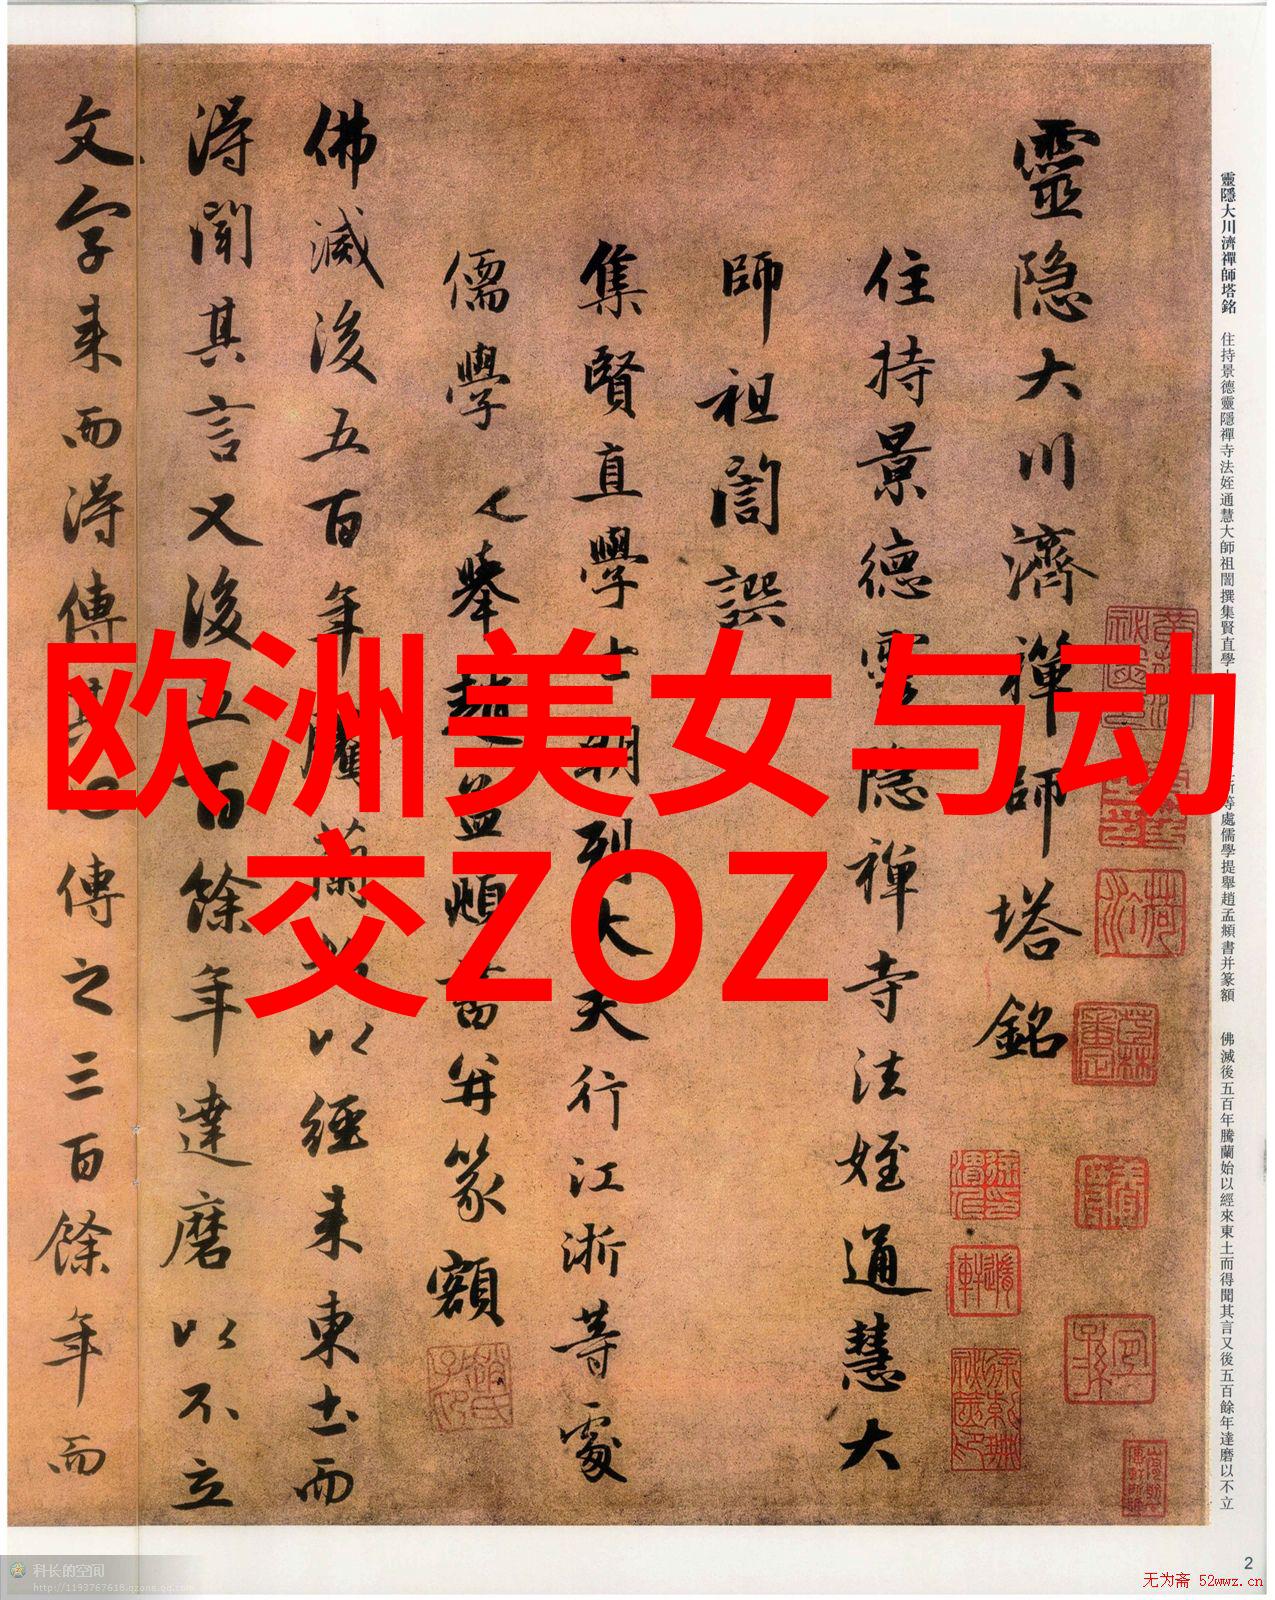 靈隐大川濟禪師塔銘
住持景德靈隐禅寺法姪通慧大
師祖誾譔
集賢直學士朝列大夫行江浙等處
儒學提舉趙孟頫書并篆額
佛滅後五百年騰蘭始以經来東土而
得聞其言又後五百餘年達磨以不立
文字来而得傳其心傳之三百餘年而
欧洲美女与动
交ZOZ
靈隱大川濟禪師塔銘 住持景德靈隱禪寺法姪通慧大師祖誾撰集賢直學
等處儒學提舉趙孟頫書并篆額 佛滅後五百年騰蘭始以經來東土而得聞其言又後五百餘年達磨以不立
2
科长的空间
http://1193767618.qzone.qq.com
无为斋 52wwz.cn